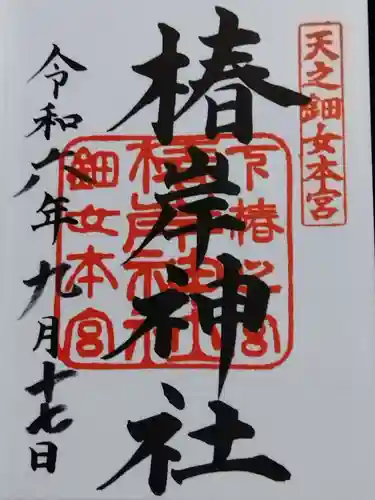 天之鈿女本宮
椿岸神社
椿岸神社
鈿女本宮
令和六年九月十七日